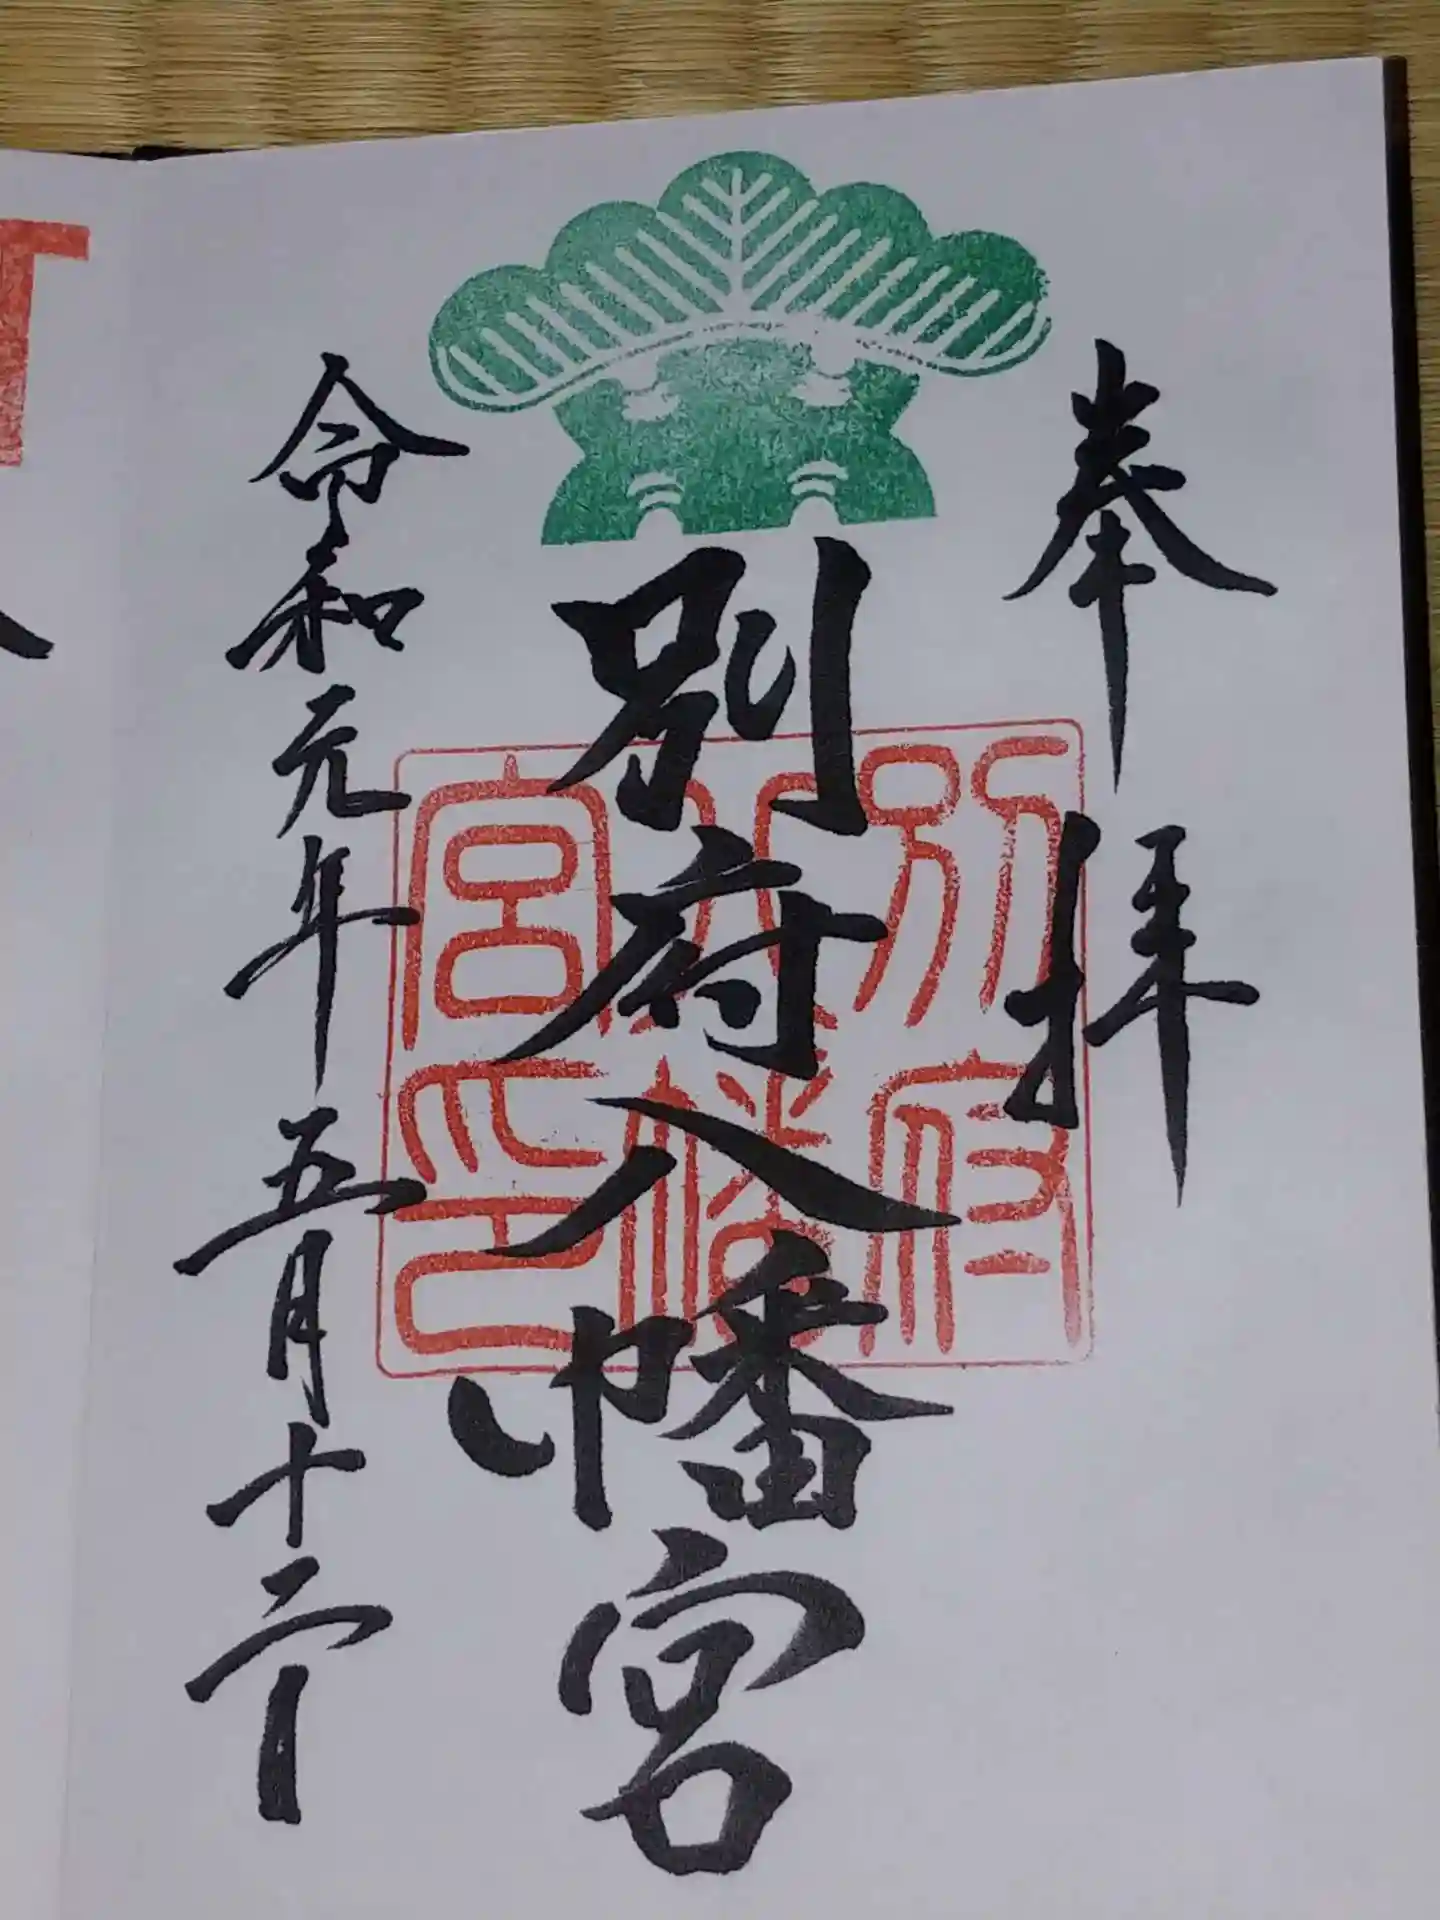 奉拝
別府八幡宮
別府
八幡
宮印
令和元年五月十二日